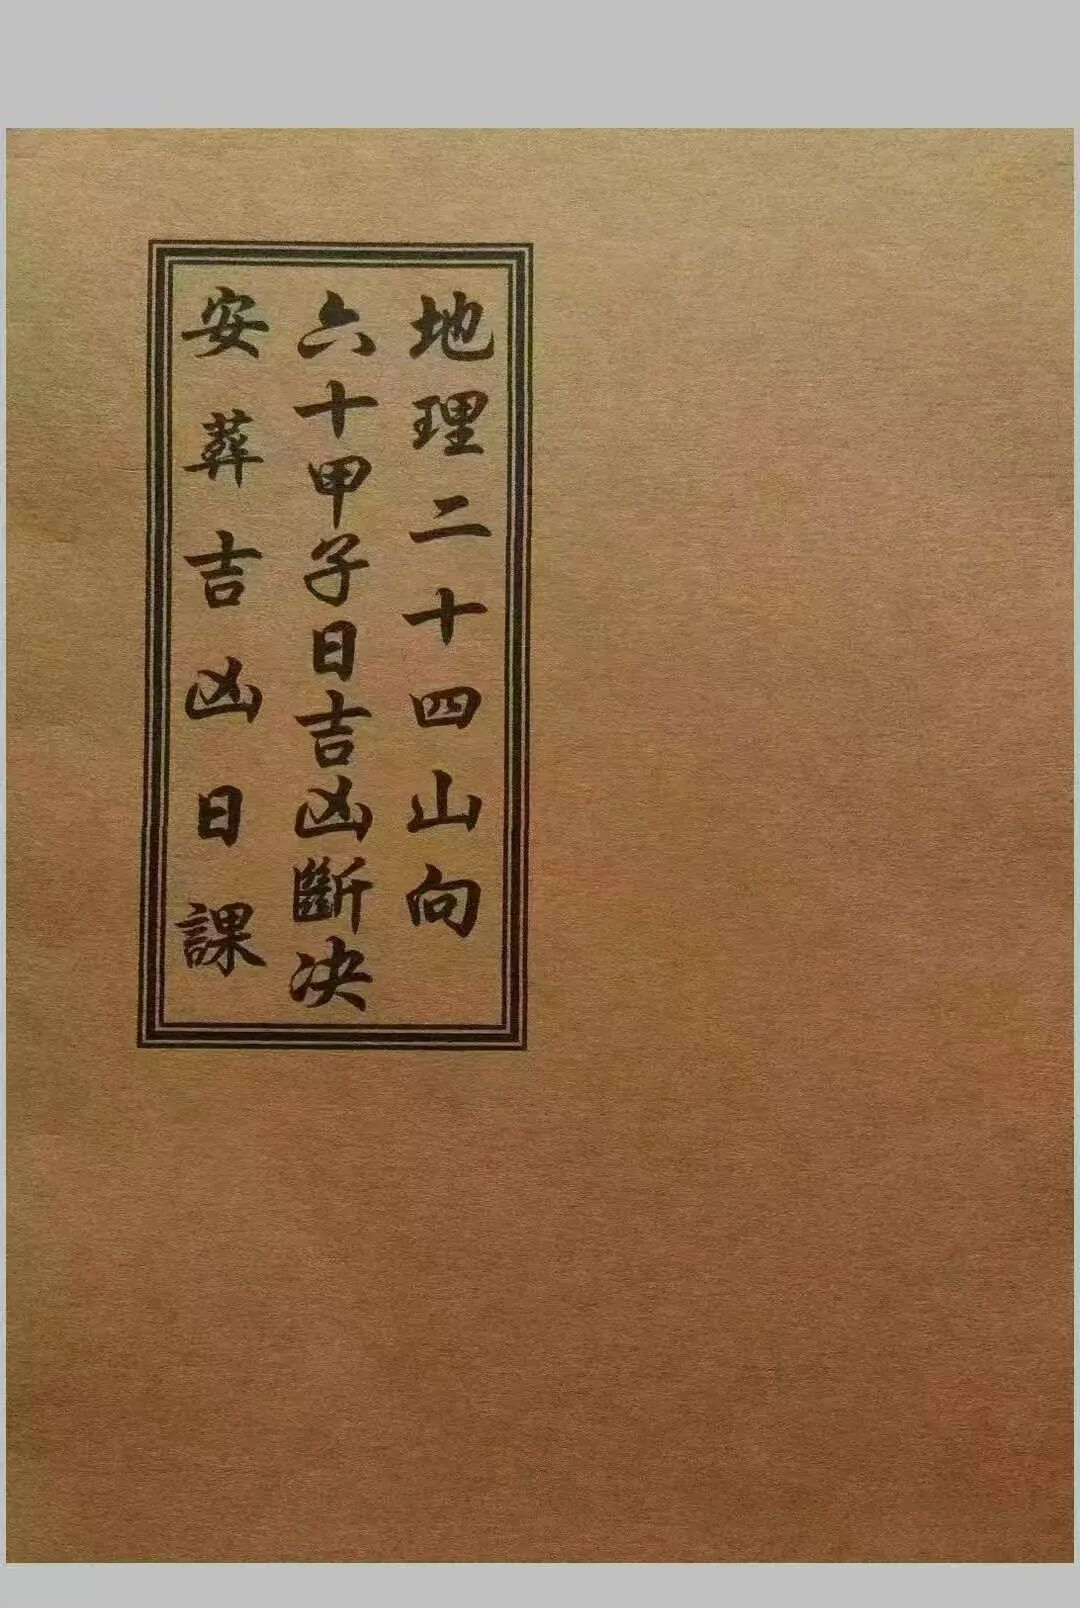 地理二十四山向
六十甲子日吉凶斷决
安葬吉凶日課